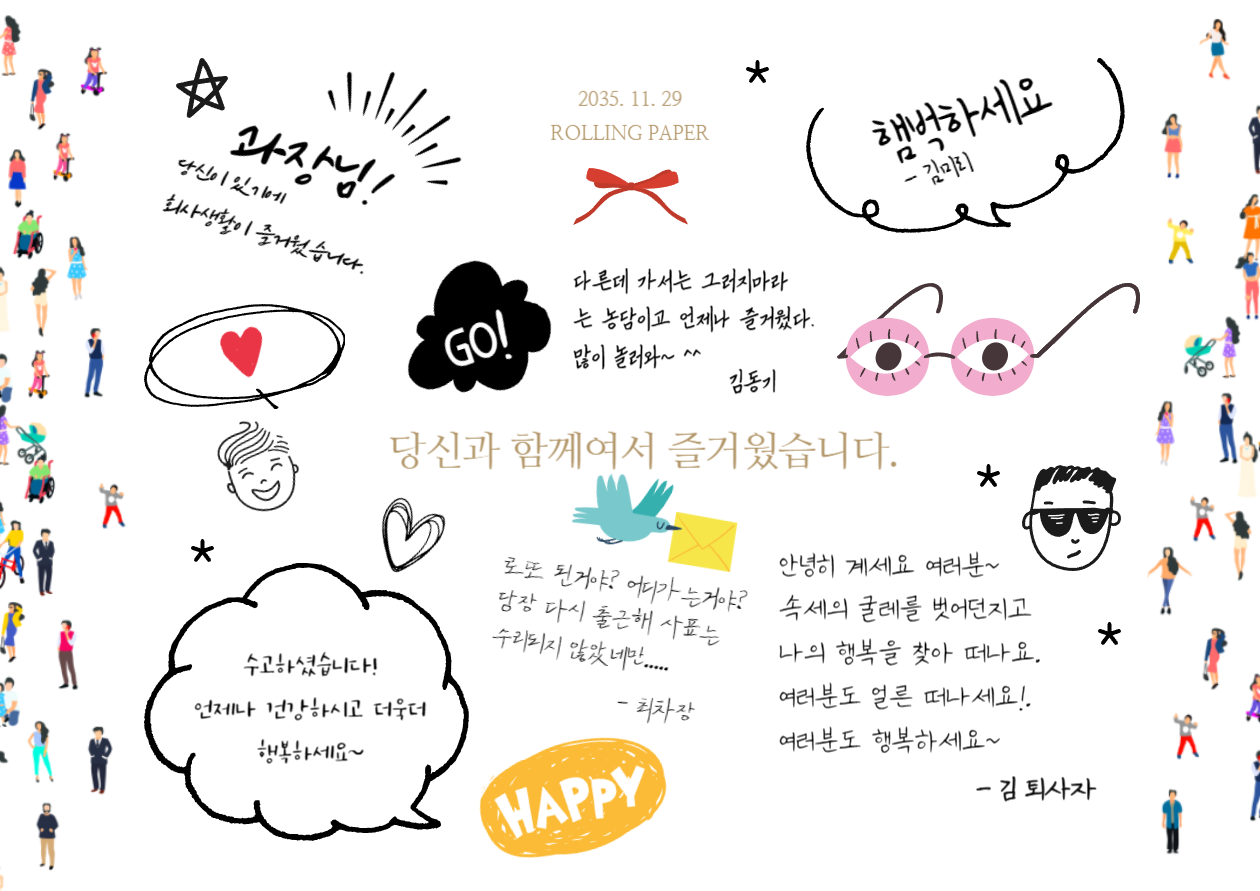 2035. 11. 29
ROLLING PAPER
과장님!
당신이 있기에
회사생활이 즐거웠습니다.
햄벅하세요
- 김미리
GO!
다른데 가서는 그러지마라
는 농담이고 언제나 즐거웠다.
많이 놀러와~ ^^
김동기
당신과 함께여서 즐거웠습니다.
로또 된거야? 어디가는거야?
당장 다시 출근해 사표는
수리되지 않았네만.....
- 최차장
안녕히 계세요 여러분~
속세의 굴레를 벗어던지고
나의 행복을 찾아 떠나요.
여러분도 얼른 떠나세요!.
여러분도 행복하세요~
- 김퇴사자
수고하셨습니다!
언제나 건강하시고 더욱더
행복하세요~
HAPPY